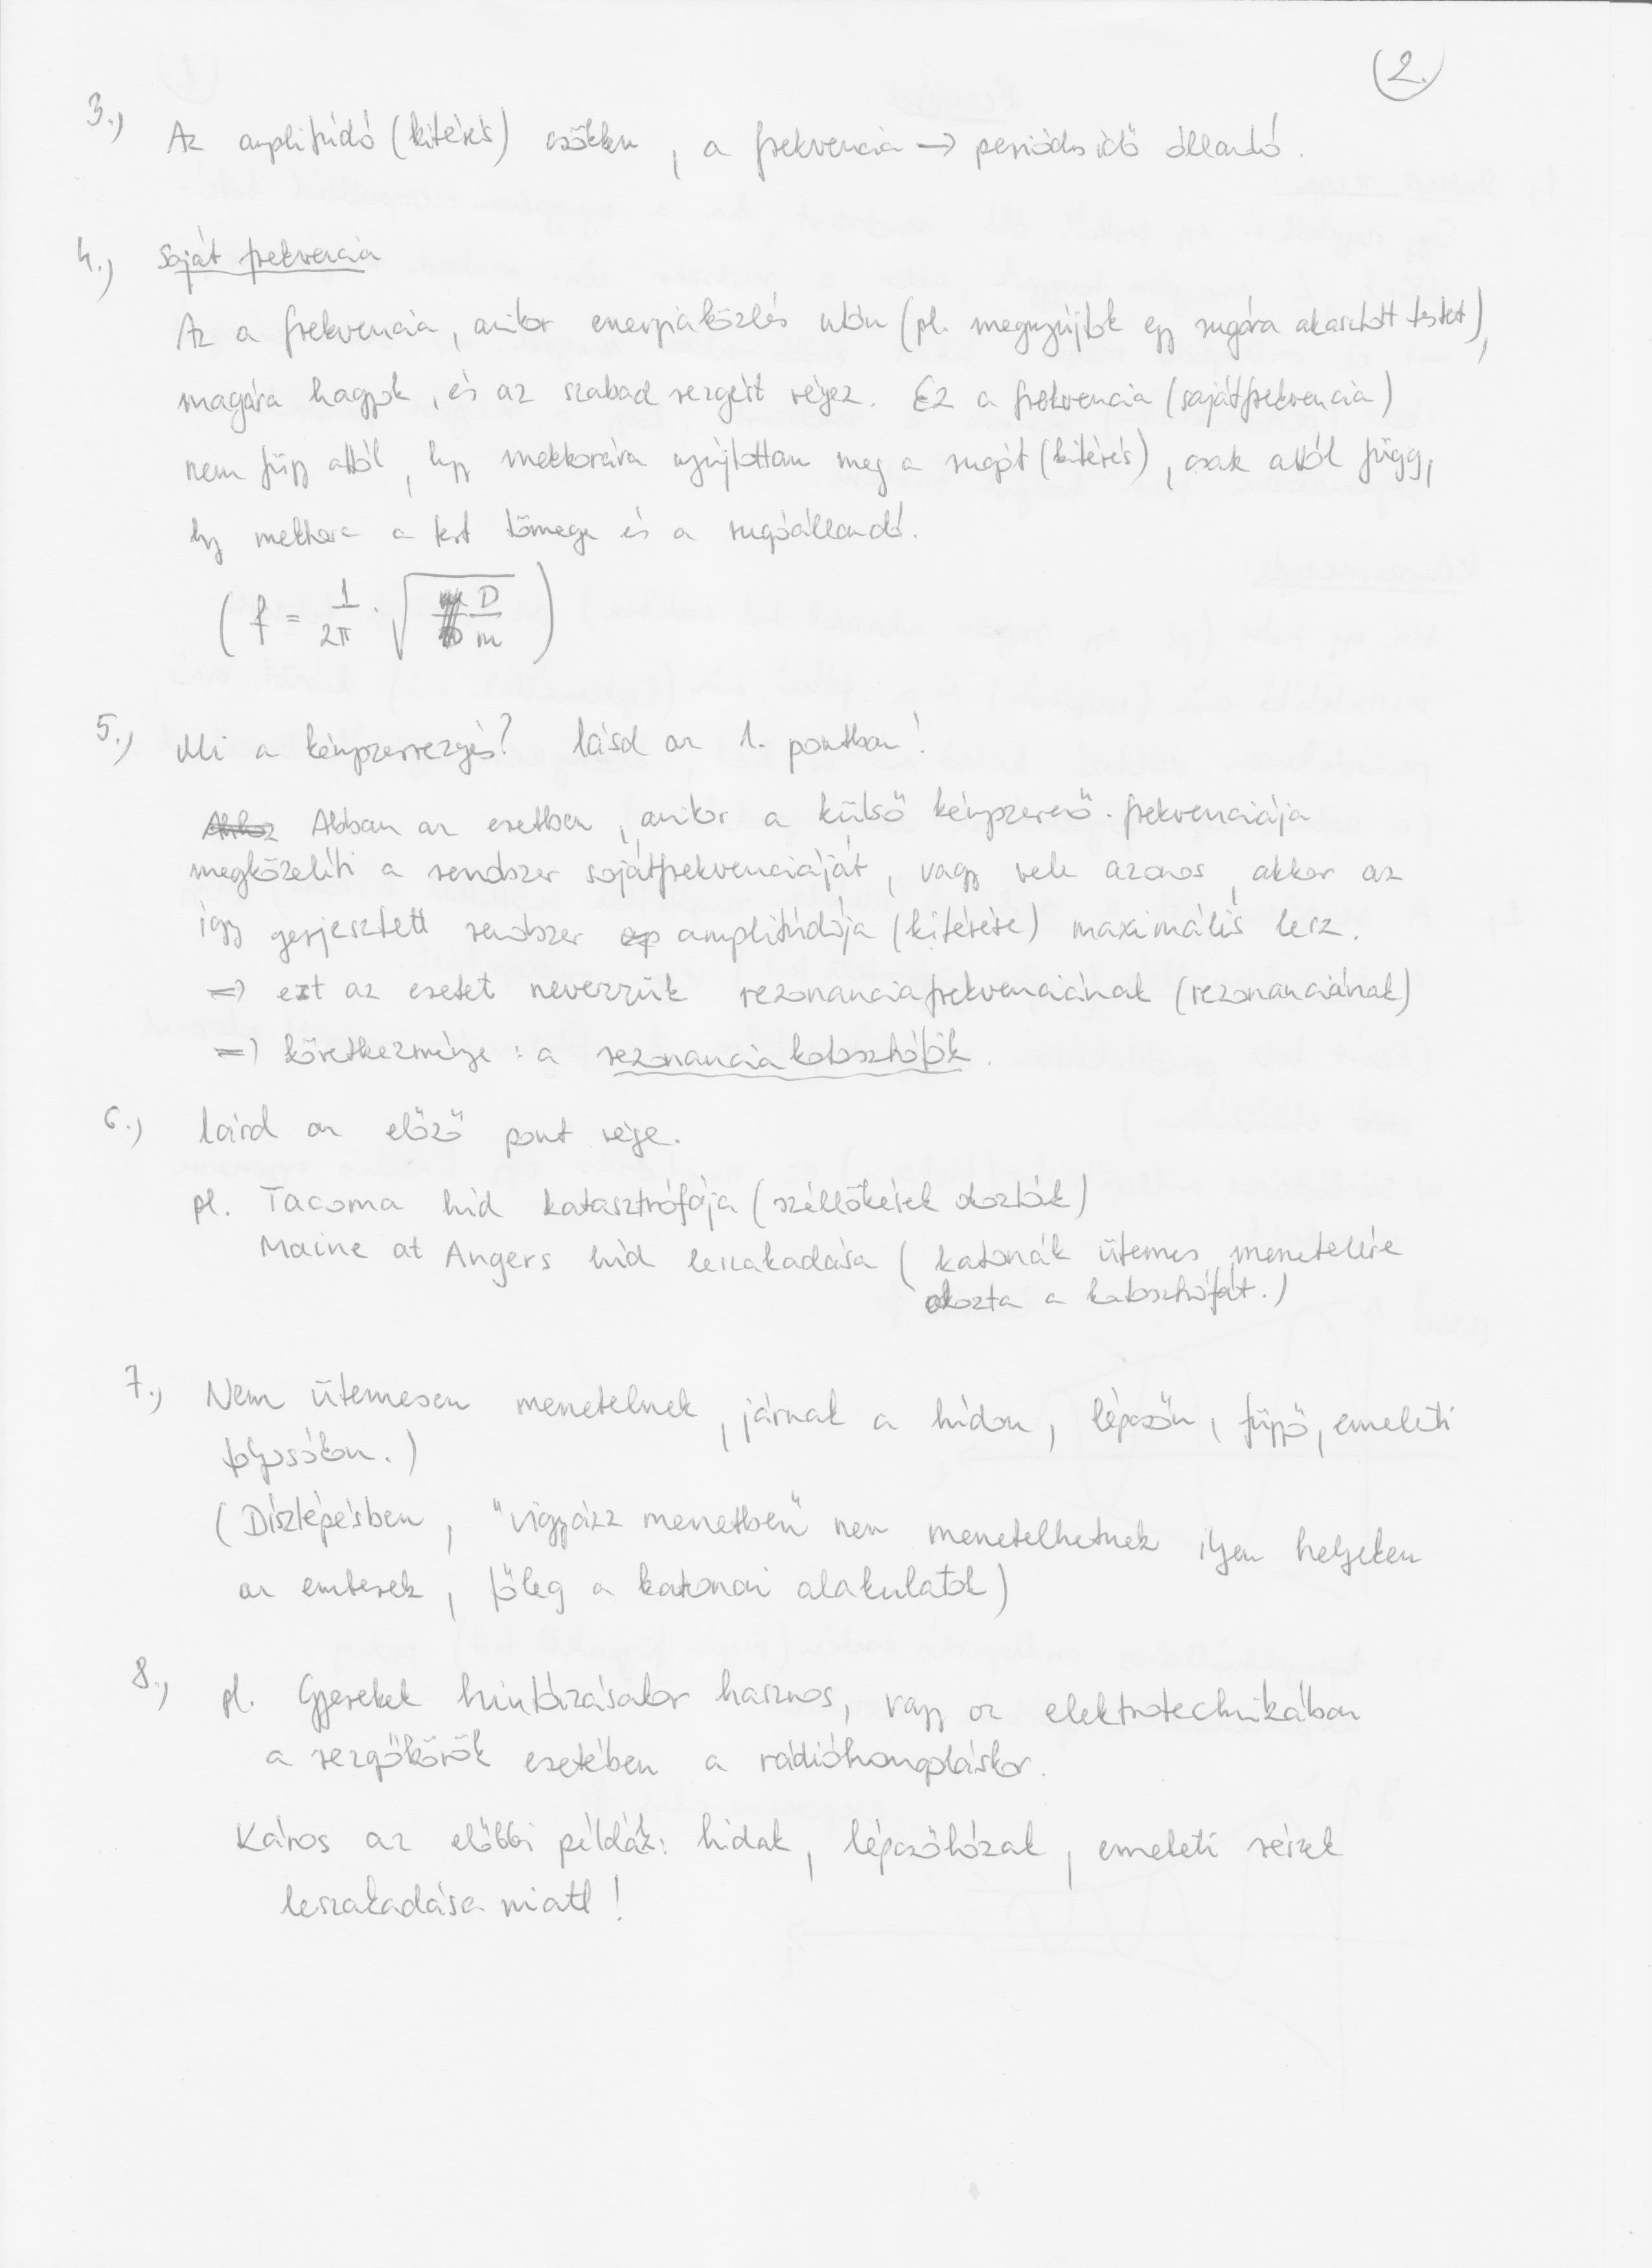 2.
3.) Az amplitúdó (kitérés) csökken, a frekvencia → periódus idő állandó.
4.) Saját frekvencia
Az a frekvencia, amikor energiaközlés után (pl. megnyújtok egy rugóra akasztott testet),
magára hagyok, és az szabad rezgést végez. Ez a frekvencia (sajátfrekvencia)
nem függ attól, hgy mekkorára nyújtottam meg a rugót (kitérés), csak attól függ,
hgy mekkora a test tömege és a rugóállandó.
(f = 1/2π · √(D/m))
5.) Mi a kényszerrezgés? lásd az 1. pontban!
Abban az esetben, amikor a külső kényszererő frekvenciája
megközelíti a rendszer sajátfrekvenciáját, vagy vele azonos, akkor az
így gerjesztett rendszer amplitúdója (kitérése) maximális lesz.
⇒ ezt az esetet nevezzük rezonanciafrekvenciának (rezonanciának)
⇒ következménye: a rezonanciakatasztrófák.
6.) lásd az előző pont vége.
pl. Tacoma híd katasztrófája (széllökések okozták)
Maine at Angers híd leszakadása (katonák ütemes menetelése
okozta a katasztrófát.)
7.) Nem ütemesen menetelnek, járnak a hídon, lépcsőn, függő, emeleti
folyosókon.)
(Díszlépésben, "vigyázz menetben" nem menetelhetnek ilyen helyeken
az emberek, főleg a katonai alakulatok)
8.) pl. Gyerekek hintázásakor hasznos, vagy az elektrotechnikában
a rezgőkörök esetében a rádióhangoláskor.
Káros az előbbi példák: hidak, lépcsőházak, emeleti részek
leszakadása miatt!